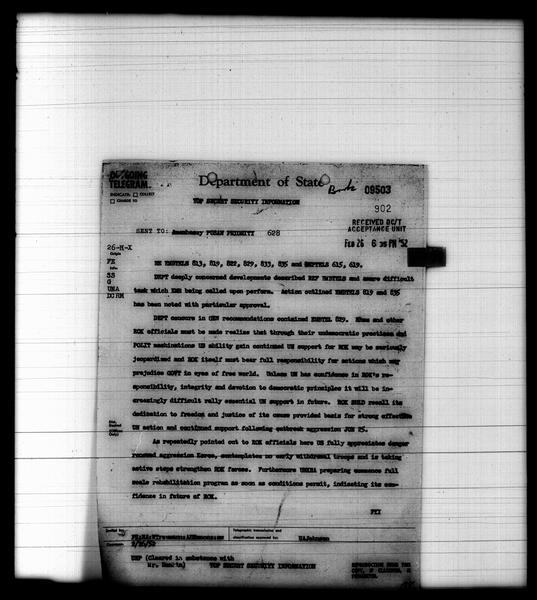 OUTGOING
TELEGRAM
INDICATE: ☐ COLLECT
☐ CHARGE TO
Department of State
09503
TOP SECRET SECURITY INFORMATION
902
RECEIVED DC/T
ACCEPTANCE UNIT
FEB 26 6 PM '52
SENT TO: Amembassy PUSAN PRIORITY 628
26-M-X
Origin
FE
Info:
SS
G
UNA
DCRM
RE EMBTELS 813, 819, 822, 829, 833, 835 and DEPTELS 615, 619.
DEPT deeply concerned developments described REF EMBTELS and aware difficult
task which EMB being called upon perform. Action outlined EMBTELS 819 and 835
has been noted with particular approval.
DEPT concurs in GEN recommendations contained EMBTEL 829. Rhee and other
ROK officials must be made realize that through their undemocratic practices and
POLIT machinations US ability gain continued UN support for ROK may be seriously
jeopardized and ROK itself must bear full responsibility for actions which may
prejudice GOVT in eyes of free world. Unless UN has confidence in ROK's re-
sponsibility, integrity and devotion to democratic principles it will be in-
creasingly difficult rally essential UN support in future. ROK SHLD recall its
dedication to freedom and justice of its cause provided basis for strong effective
UN action and continued support following outbreak aggression JUN 25.
As repeatedly pointed out to ROK officials here US fully appreciates danger
renewed aggression Korea, contemplates no early withdrawal troops and is taking
active steps strengthen ROK forces. Furthermore UNKRA preparing commence full
scale rehabilitation program as soon as conditions permit, indicating its con-
fidence in future of ROK.
FYI
Drafted by:
Telegraphic transmission and
classification approved by:
UAJohnson
2/26/52
UNP (Cleared in substance with
Mr.
TOP SECRET SECURITY INFORMATION
REPRODUCTION FROM THIS
COPY, IF CLASSIFIED, IS
PROHIBITED.